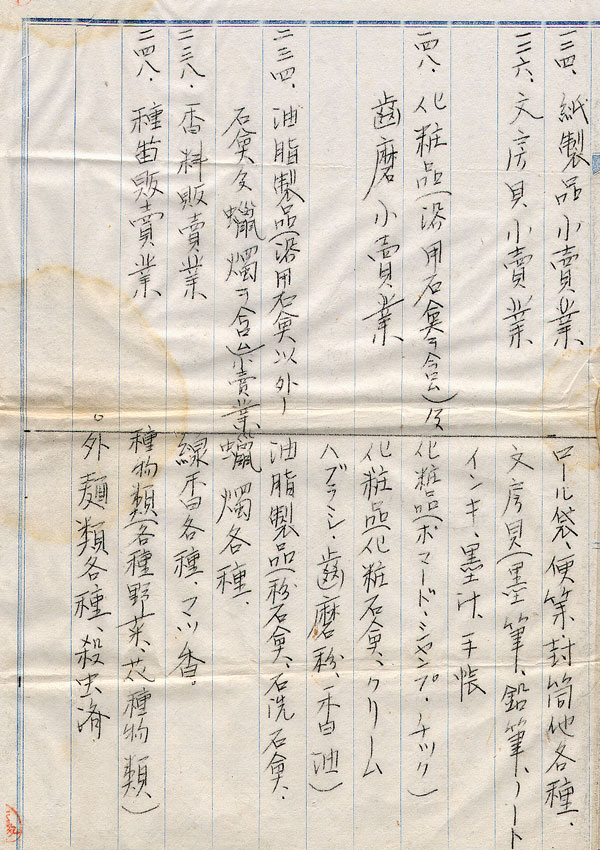 一三四、紙製品小賣業
一三六、文房具小賣業
一四八、化粧品(浴用石鹼ヲ含ム)及
齒磨小賣業
二三四、油脂製品(浴用石鹼以外ノ
石鹼及蠟燭ヲ含ム)小賣業
二三八、香料販賣業
二四八、種苗販賣業
ロール袋、便箋、封筒他各種、
文房具(墨、筆、鉛筆、ノート
インキ、墨汁、手帳
化粧品(ポマード・シャンプ・チック)
化粧品(化粧石鹼、クリーム
ハブラシ・齒磨粉、香油)
油脂製品(粉石鹼、石洗石鹼、
蠟燭各種、
線香各種、マツ香。
種物類(各種野菜、花種物類、)
。外麺類各種、殺虫済